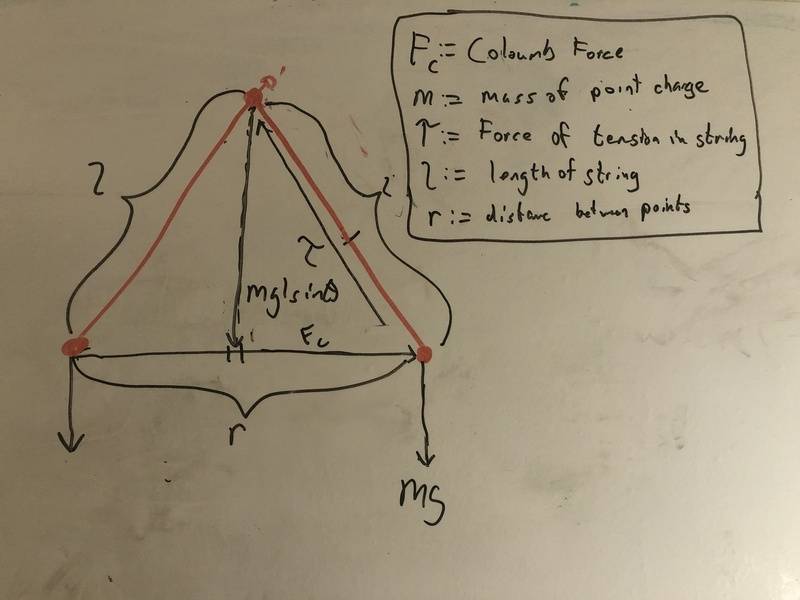 F_c := Coloumb Force
m := mass of point charge
T := Force of tension in string
l := length of string
r := distance between points
l
l
T
mglsinθ
F_c
r
mg